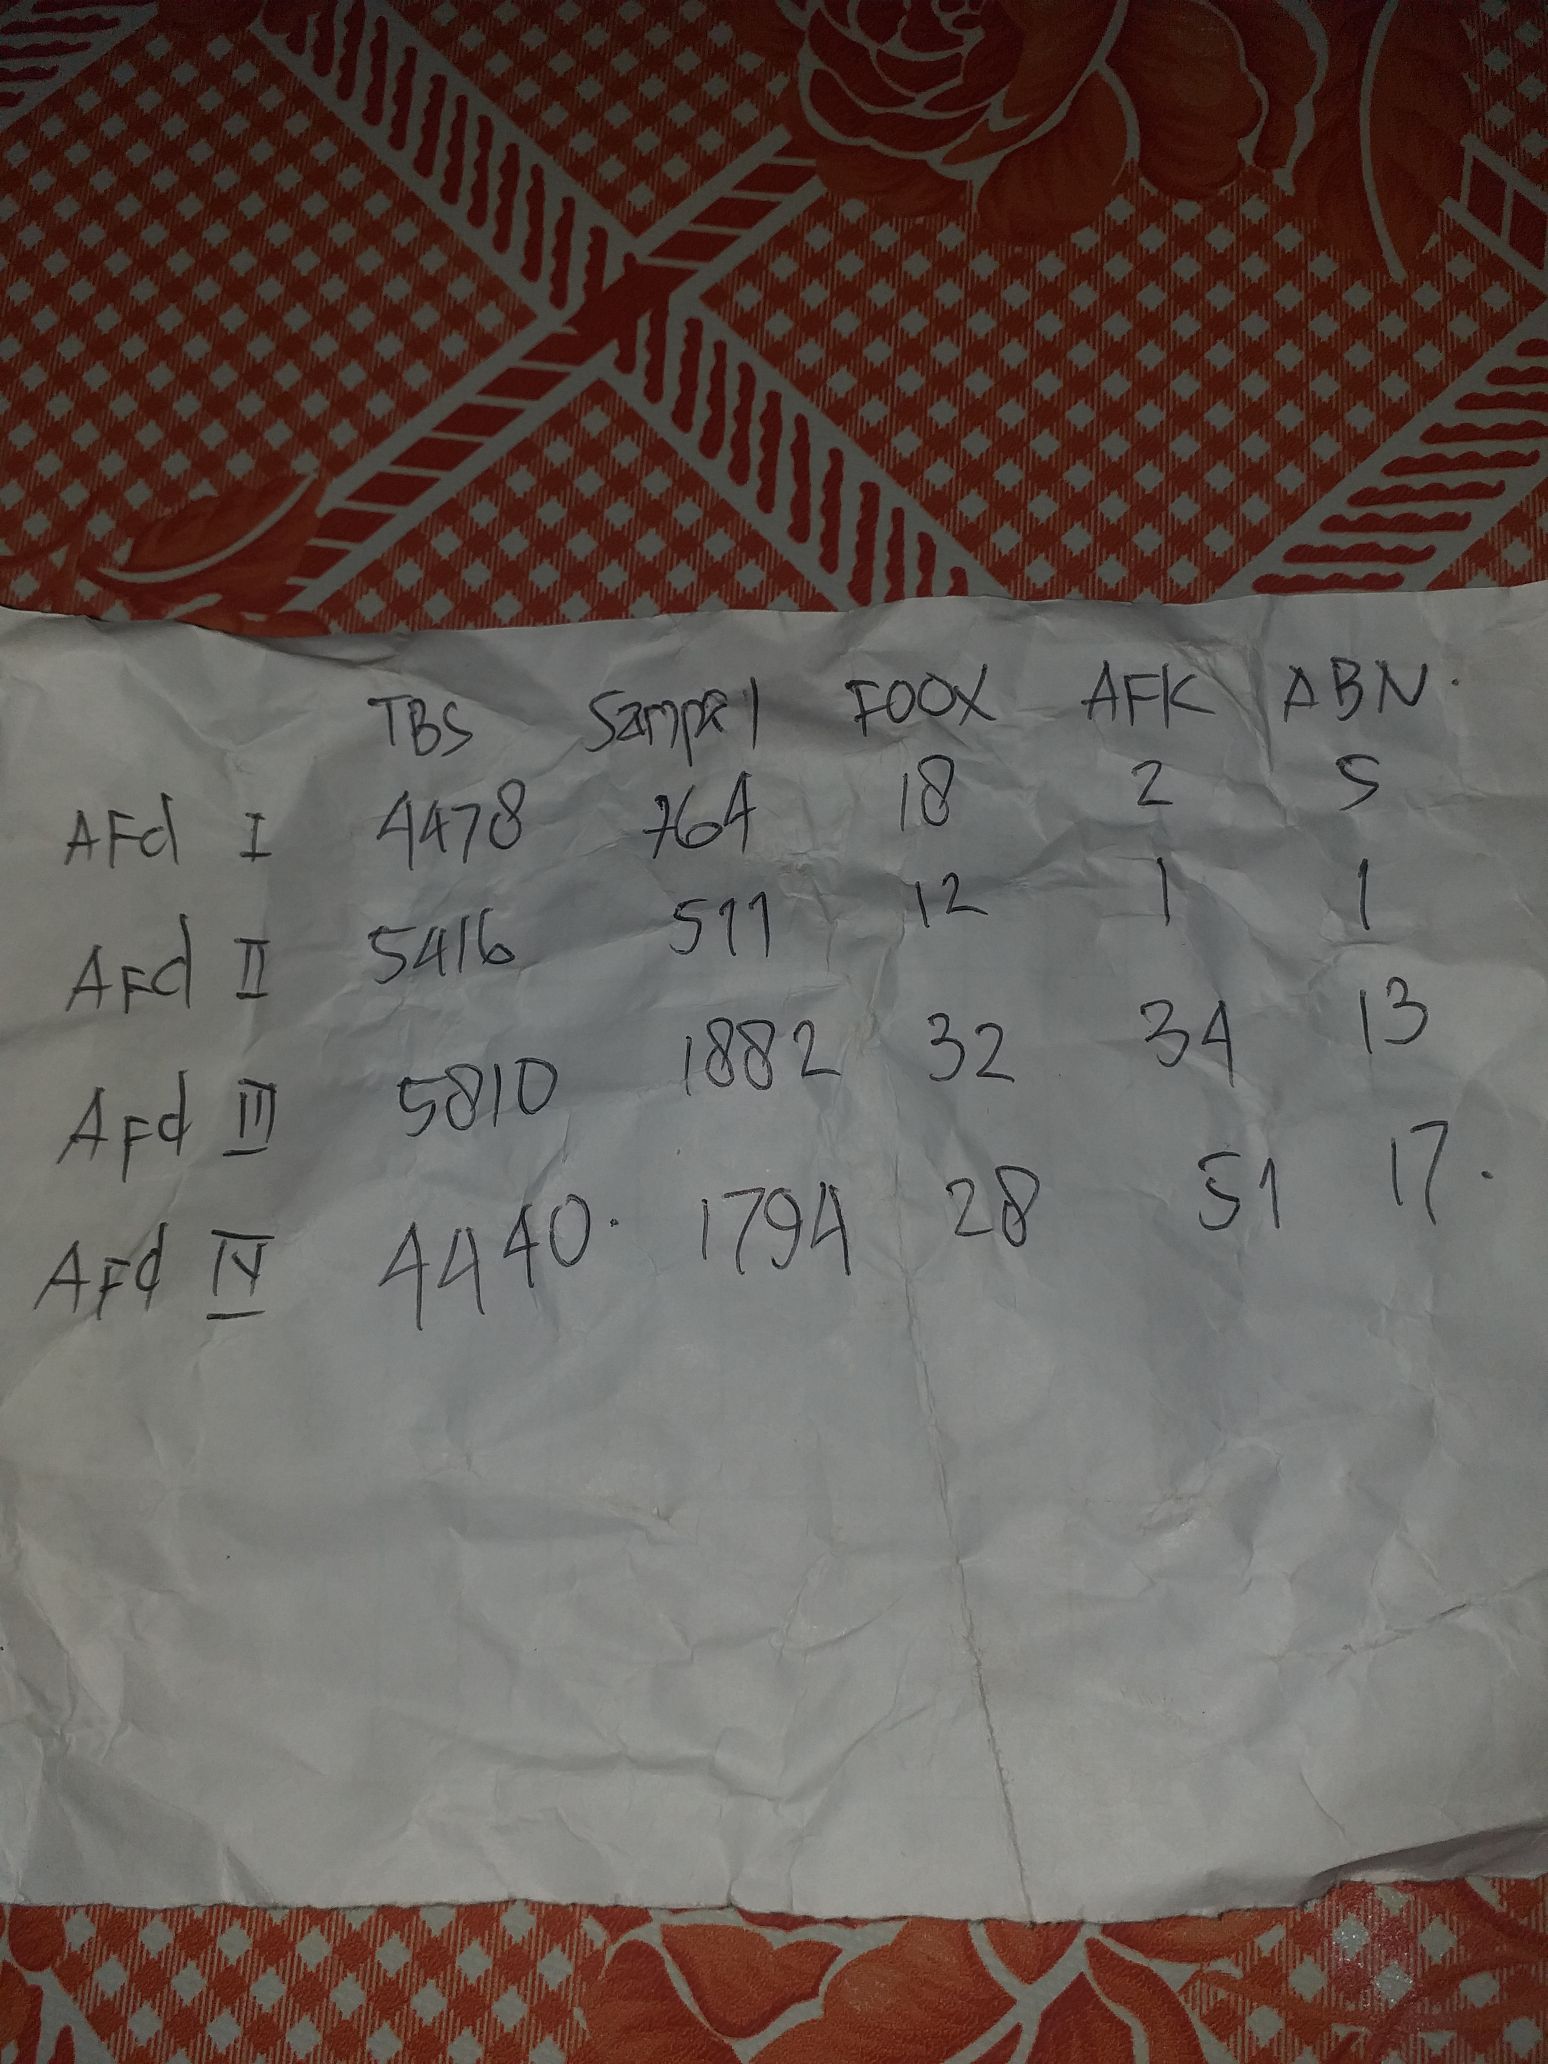 TBS Sampel FOOX AFK ABN.
AFd I 4478 764 18 2 5
AFd II 5416 511 12 1 1
AFd III 5810 1882 32 34 13
AFd IV 4440. 1794 28 51 17.